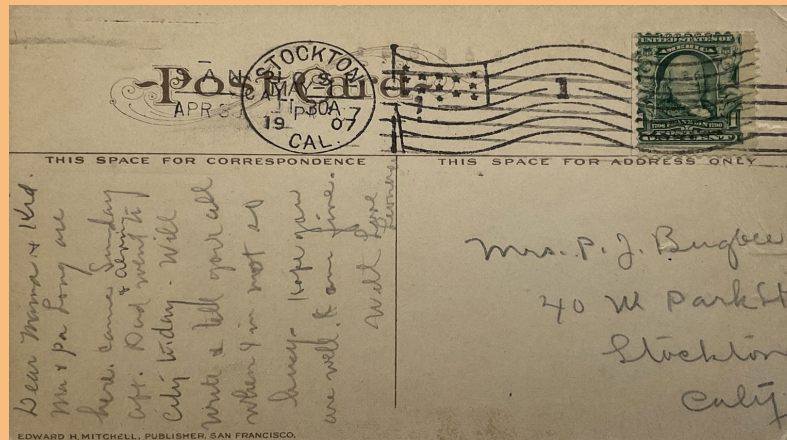 Post Card
SAN
APR 3
STOCKTON
MAY 2
11-30A
1907
CAL.
1
UNITED STATES OF
AMERICA
THIS SPACE FOR CORRESPONDENCE
THIS SPACE FOR ADDRESS ONLY
Dear Mama & Kid.
Ma & Pa Long are
here. came Sunday
aft. Dad went to
& Alvin
City today. Will
write & tell you all
when I'm not so
busy. Hope you
are well. I am fine.
With Love
Mrs. P. J. Bugbee
40 W Park St
Stockton
Calif
EDWARD H. MITCHELL, PUBLISHER, SAN FRANCISCO.